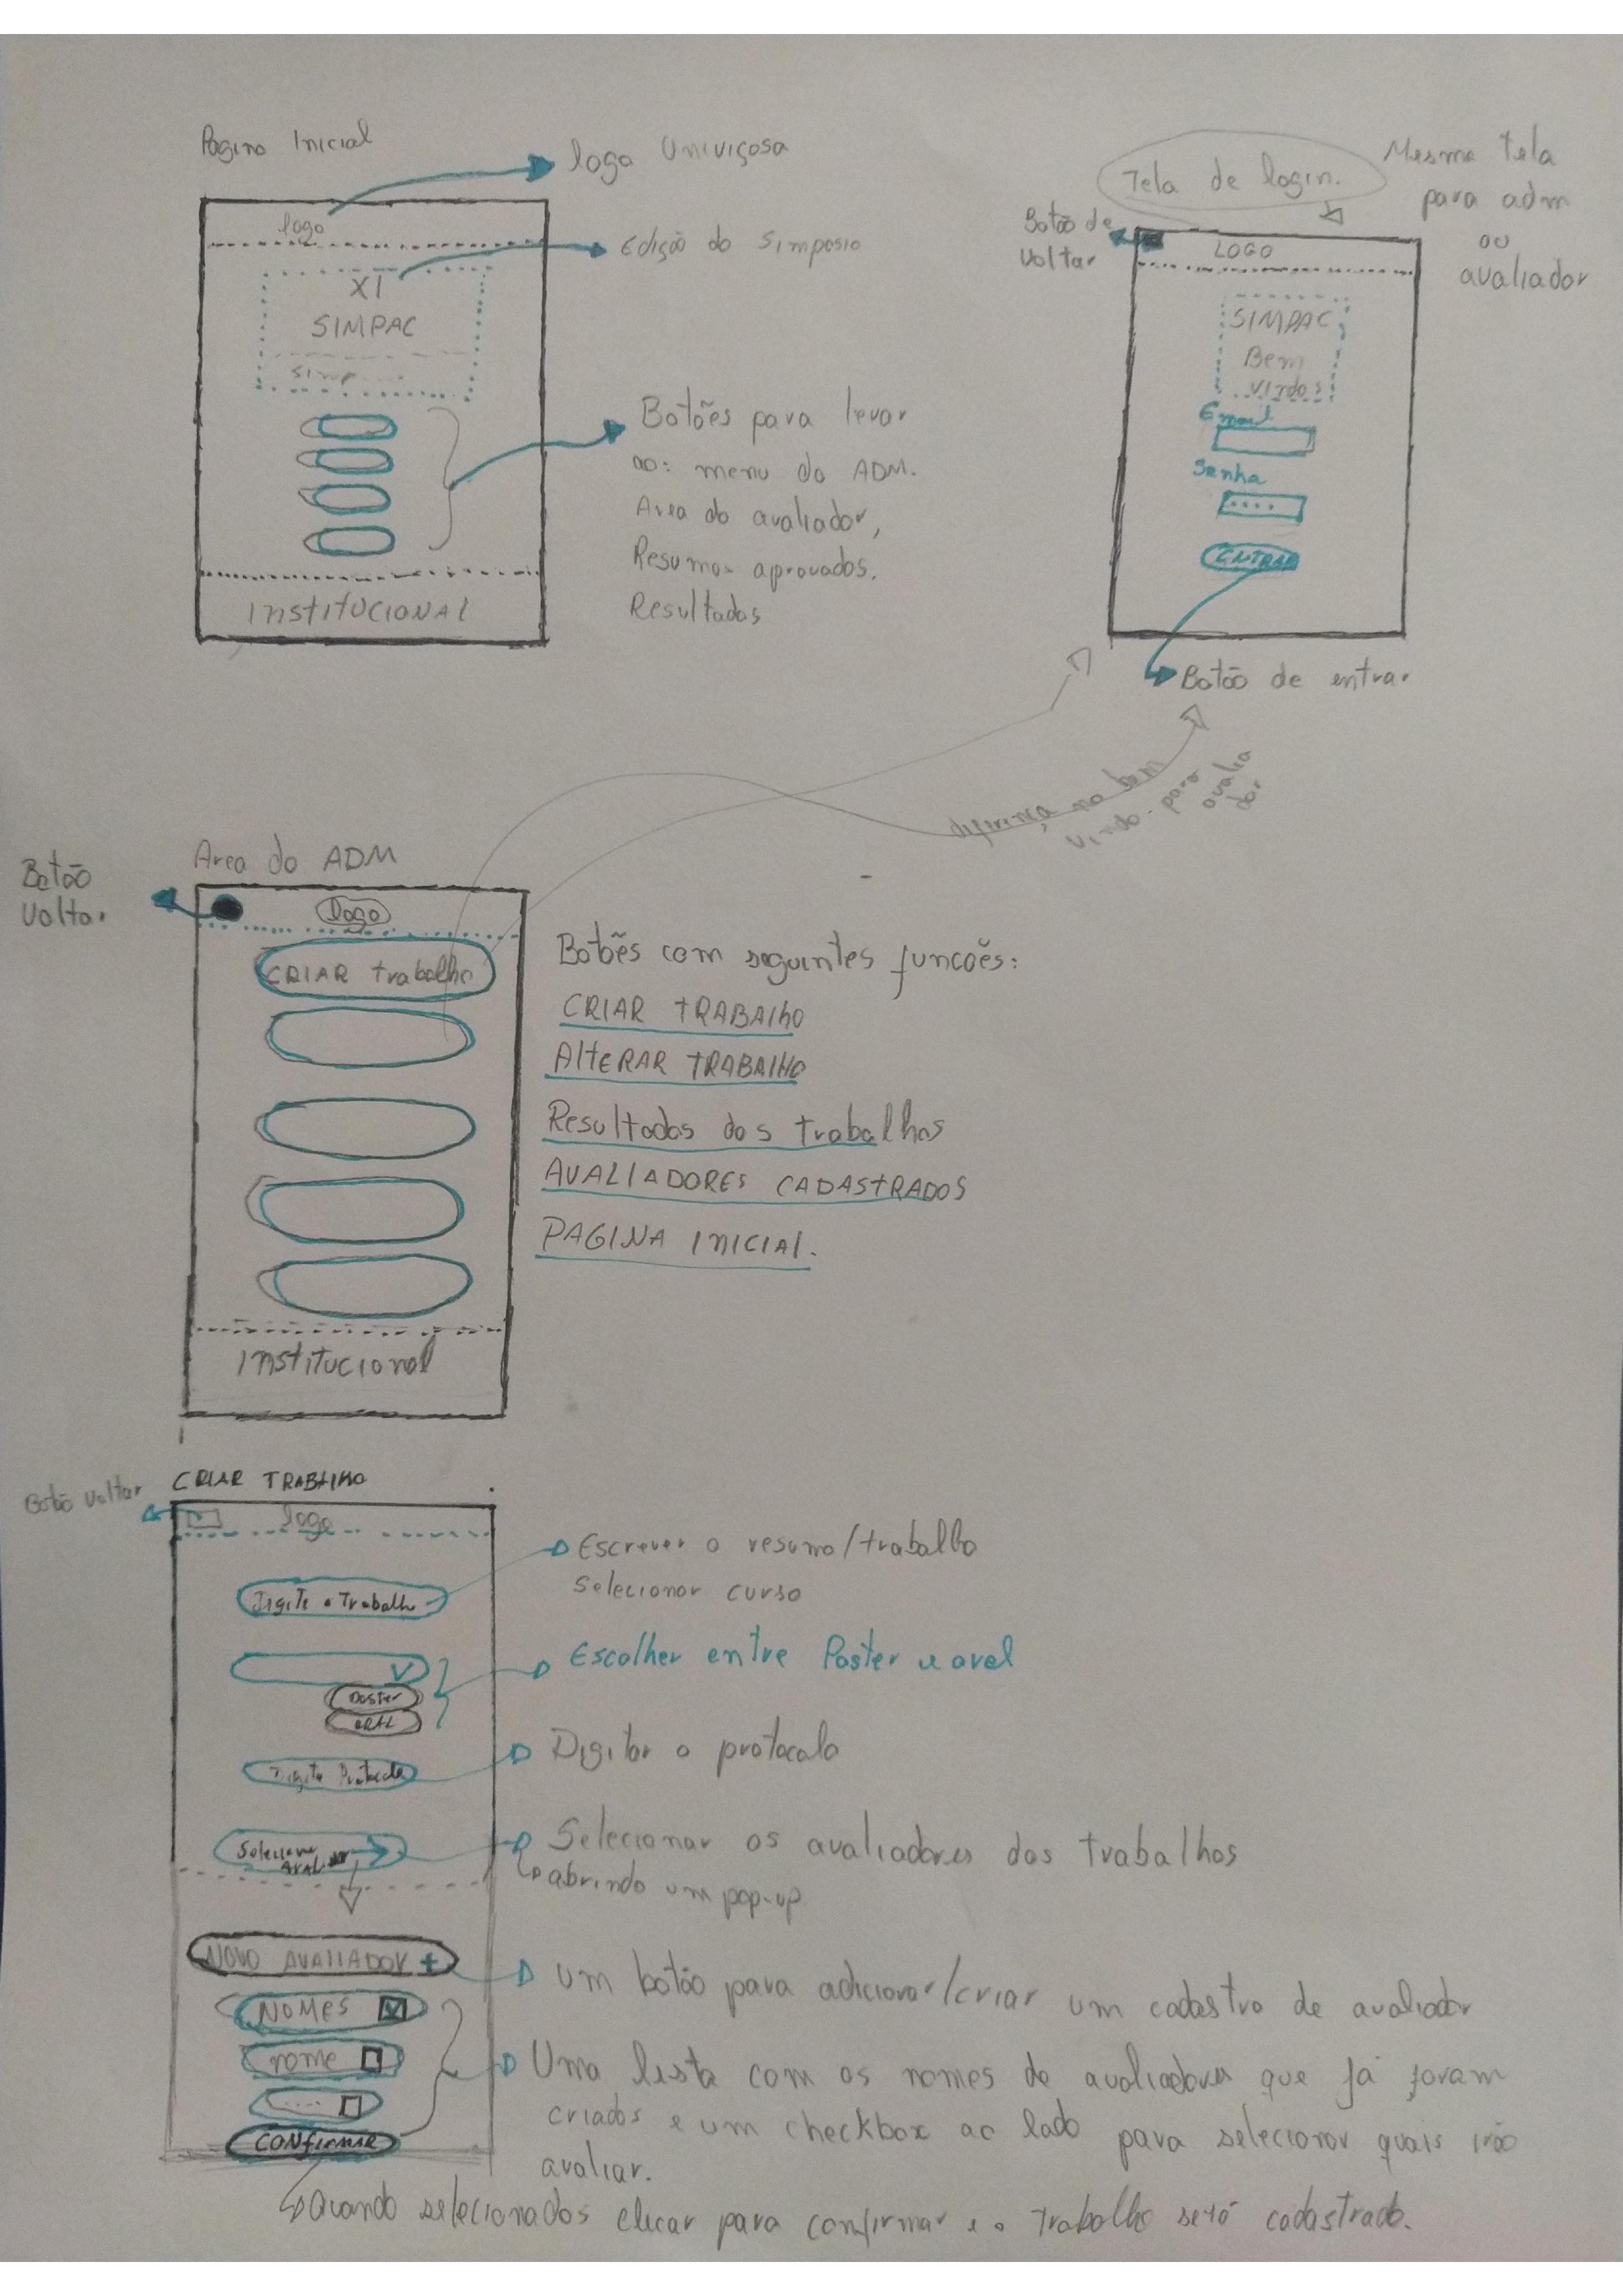 Pagina Inicial
logo Univiçosa
logo
Edição do Simposio
XI
SIMPAC
Simp....
Botões para levar
ao: menu do ADM.
Area do avaliador,
Resumos aprovados.
Resultados
INSTITUCIONAL
Tela de login.
Mesma tela
para adm
ou
avaliador
Botão de
Voltar
LOGO
SIMPAC
Bem
vindos
Email
Senha
....
ENTRAR
Botão de entrar
diferença no bem
vindo. para
avalia
dor
Area do ADM
Botão
Voltar
logo
CRIAR trabalho
Botões com seguintes funcões:
CRIAR TRABAlhO
AltERAR TRABAlHO
Resultados dos trabalhos
AVALIADORES CADASTRADOS
PAGINA INICIAl.
Institucional
CRIAR TRABALHO
Botão Voltar
logo
Digite o Trabalho
Escrever o resumo/trabalho
Selecionar curso
Escolher entre Poster e oral
Poster
ORAL
Digite Protocolo
Digitar o protocolo
Selecionar
Selecionar os avaliadores dos trabalhos
abrindo um pop-up
NOVO AVALIADOR +
um botão para adicionar/criar um cadastro de avaliador
NOMES
nome
....
CONfirmAR
Uma lista com os nomes de avaliadores que já foram
criados e um checkbox ao lado para selecionar quais irão
avaliar.
Quando selecionados clicar para confirmar e o trabalho será cadastrado.